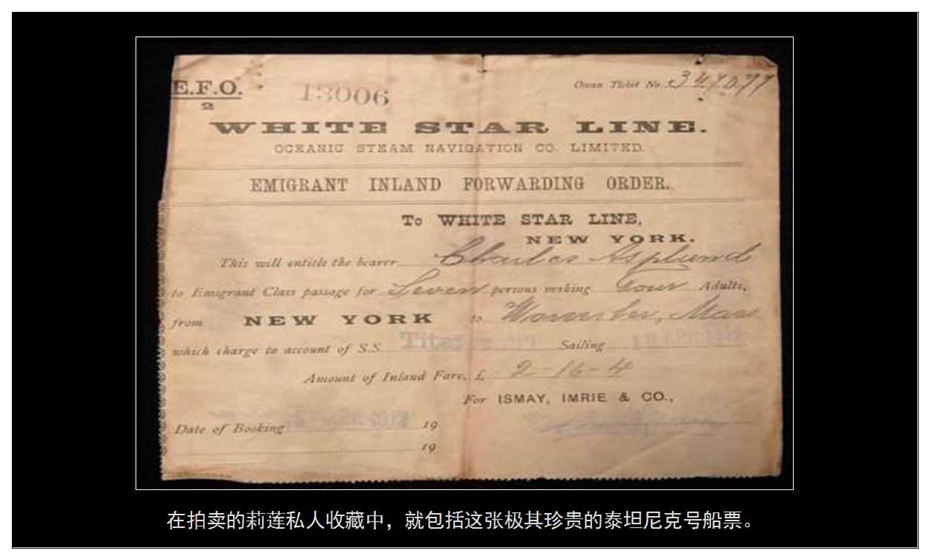 E.F.O.
2
13006
Ocean Ticket No. 347077
WHITE STAR LINE.
OCEANIC STEAM NAVIGATION CO. LIMITED.
EMIGRANT INLAND FORWARDING ORDER.
To WHITE STAR LINE,
NEW YORK.
This will entitle the bearer Charles Asplund
to Emigrant Class passage for Seven persons making Four Adults,
from NEW YORK to Worcester, Mass
which charge to account of S.S. Titanic Sailing
Amount of Inland Fare, £ 2-16-4
For ISMAY, IMRIE & CO.,
Date of Booking 19
19
在拍卖的莉莲私人收藏中，就包括这张极其珍贵的泰坦尼克号船票。